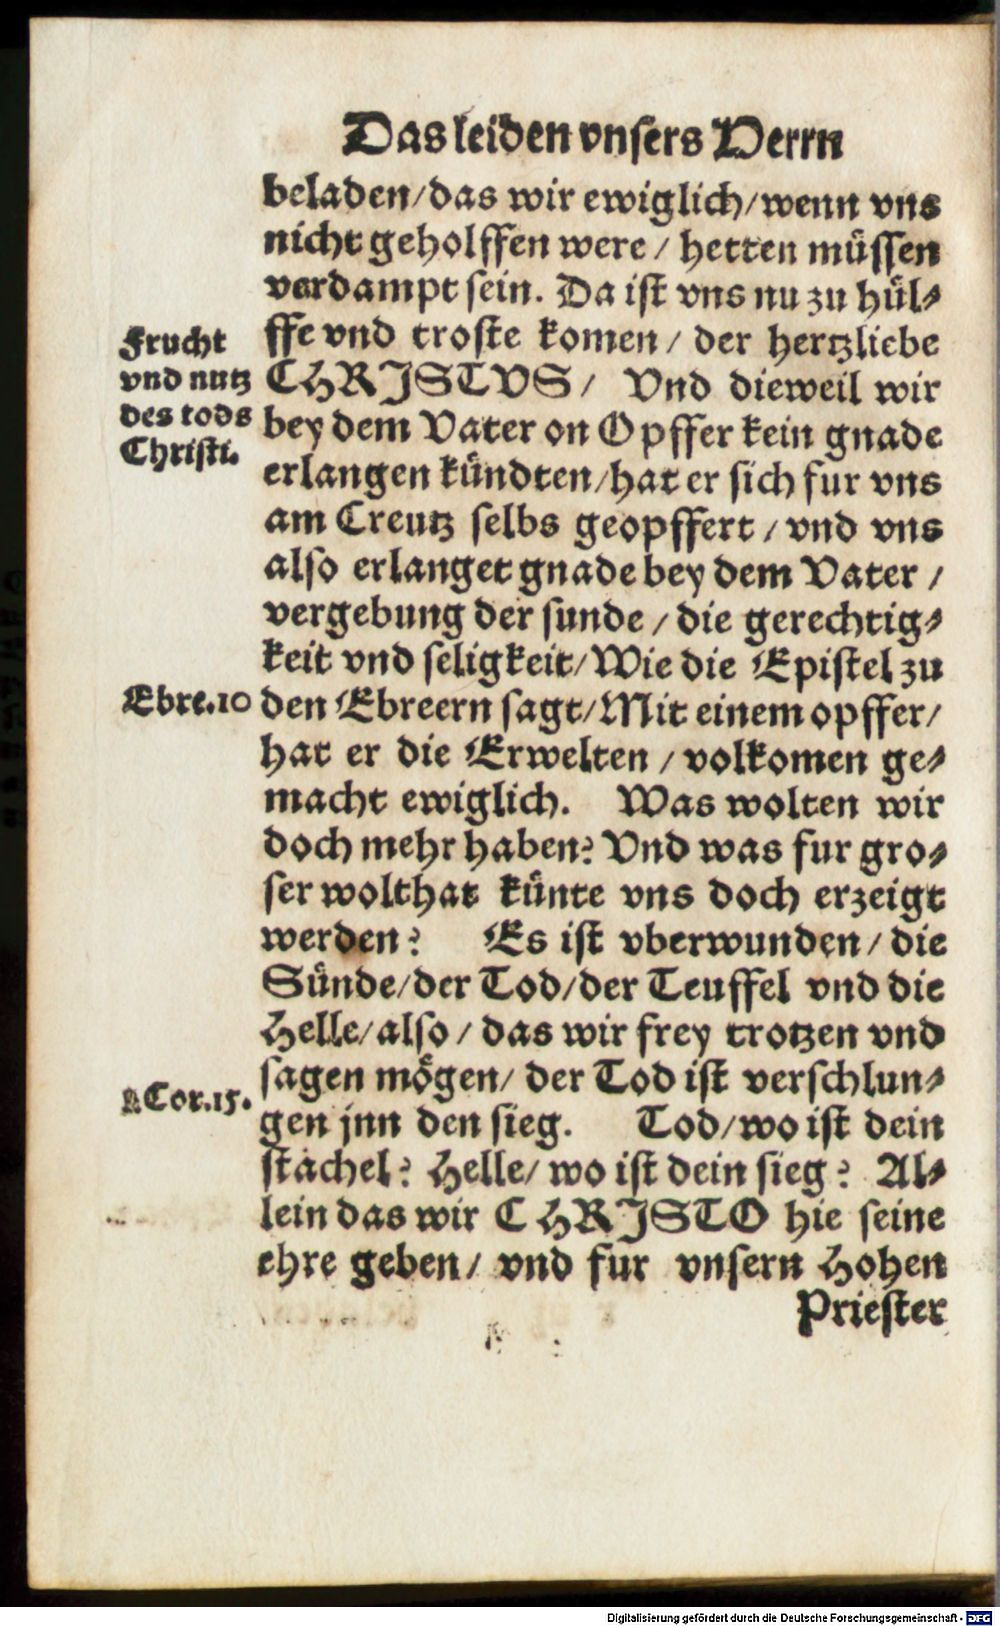 Das leiden vnsers Herrn
beladen/das wir ewiglich/wenn vns
nicht geholffen were/ hetten müssen
verdampt sein. Da ist vns nu zu hül⸗
ffe vnd troste komen/ der hertzliebe
CHRISTVS/ Vnd dieweil wir
bey dem Vater on Opffer kein gnade
erlangen kündten/hat er sich fur vns
am Creutz selbs geopffert/vnd vns
also erlanget gnade bey dem Vater/
vergebung der sunde/die gerechtig⸗
keit vnd seligkeit/Wie die Epistel zu
den Ebreern sagt/Mit einem opffer/
hat er die Erwelten/volkomen ge⸗
macht ewiglich. Was wolten wir
doch mehr haben? Vnd was fur gro⸗
ser wolthat künte vns doch erzeigt
werden? Es ist vberwunden/die
Sünde/der Tod/der Teuffel vnd die
Helle/also/das wir frey trotzen vnd
sagen mögen/der Tod ist verschlun⸗
gen jnn den sieg. Tod/wo ist dein
stachel? Helle/wo ist dein sieg? Al⸗
lein das wir CHRISTO hie seine
ehre geben/ vnd fur vnsern Hohen
Priester
Frucht
vnd nutz
des tods
Christi.
Ebre.10
Cor.15.
Digitalisierung gefördert durch die Deutsche Forschungsgemeinschaft - DFG